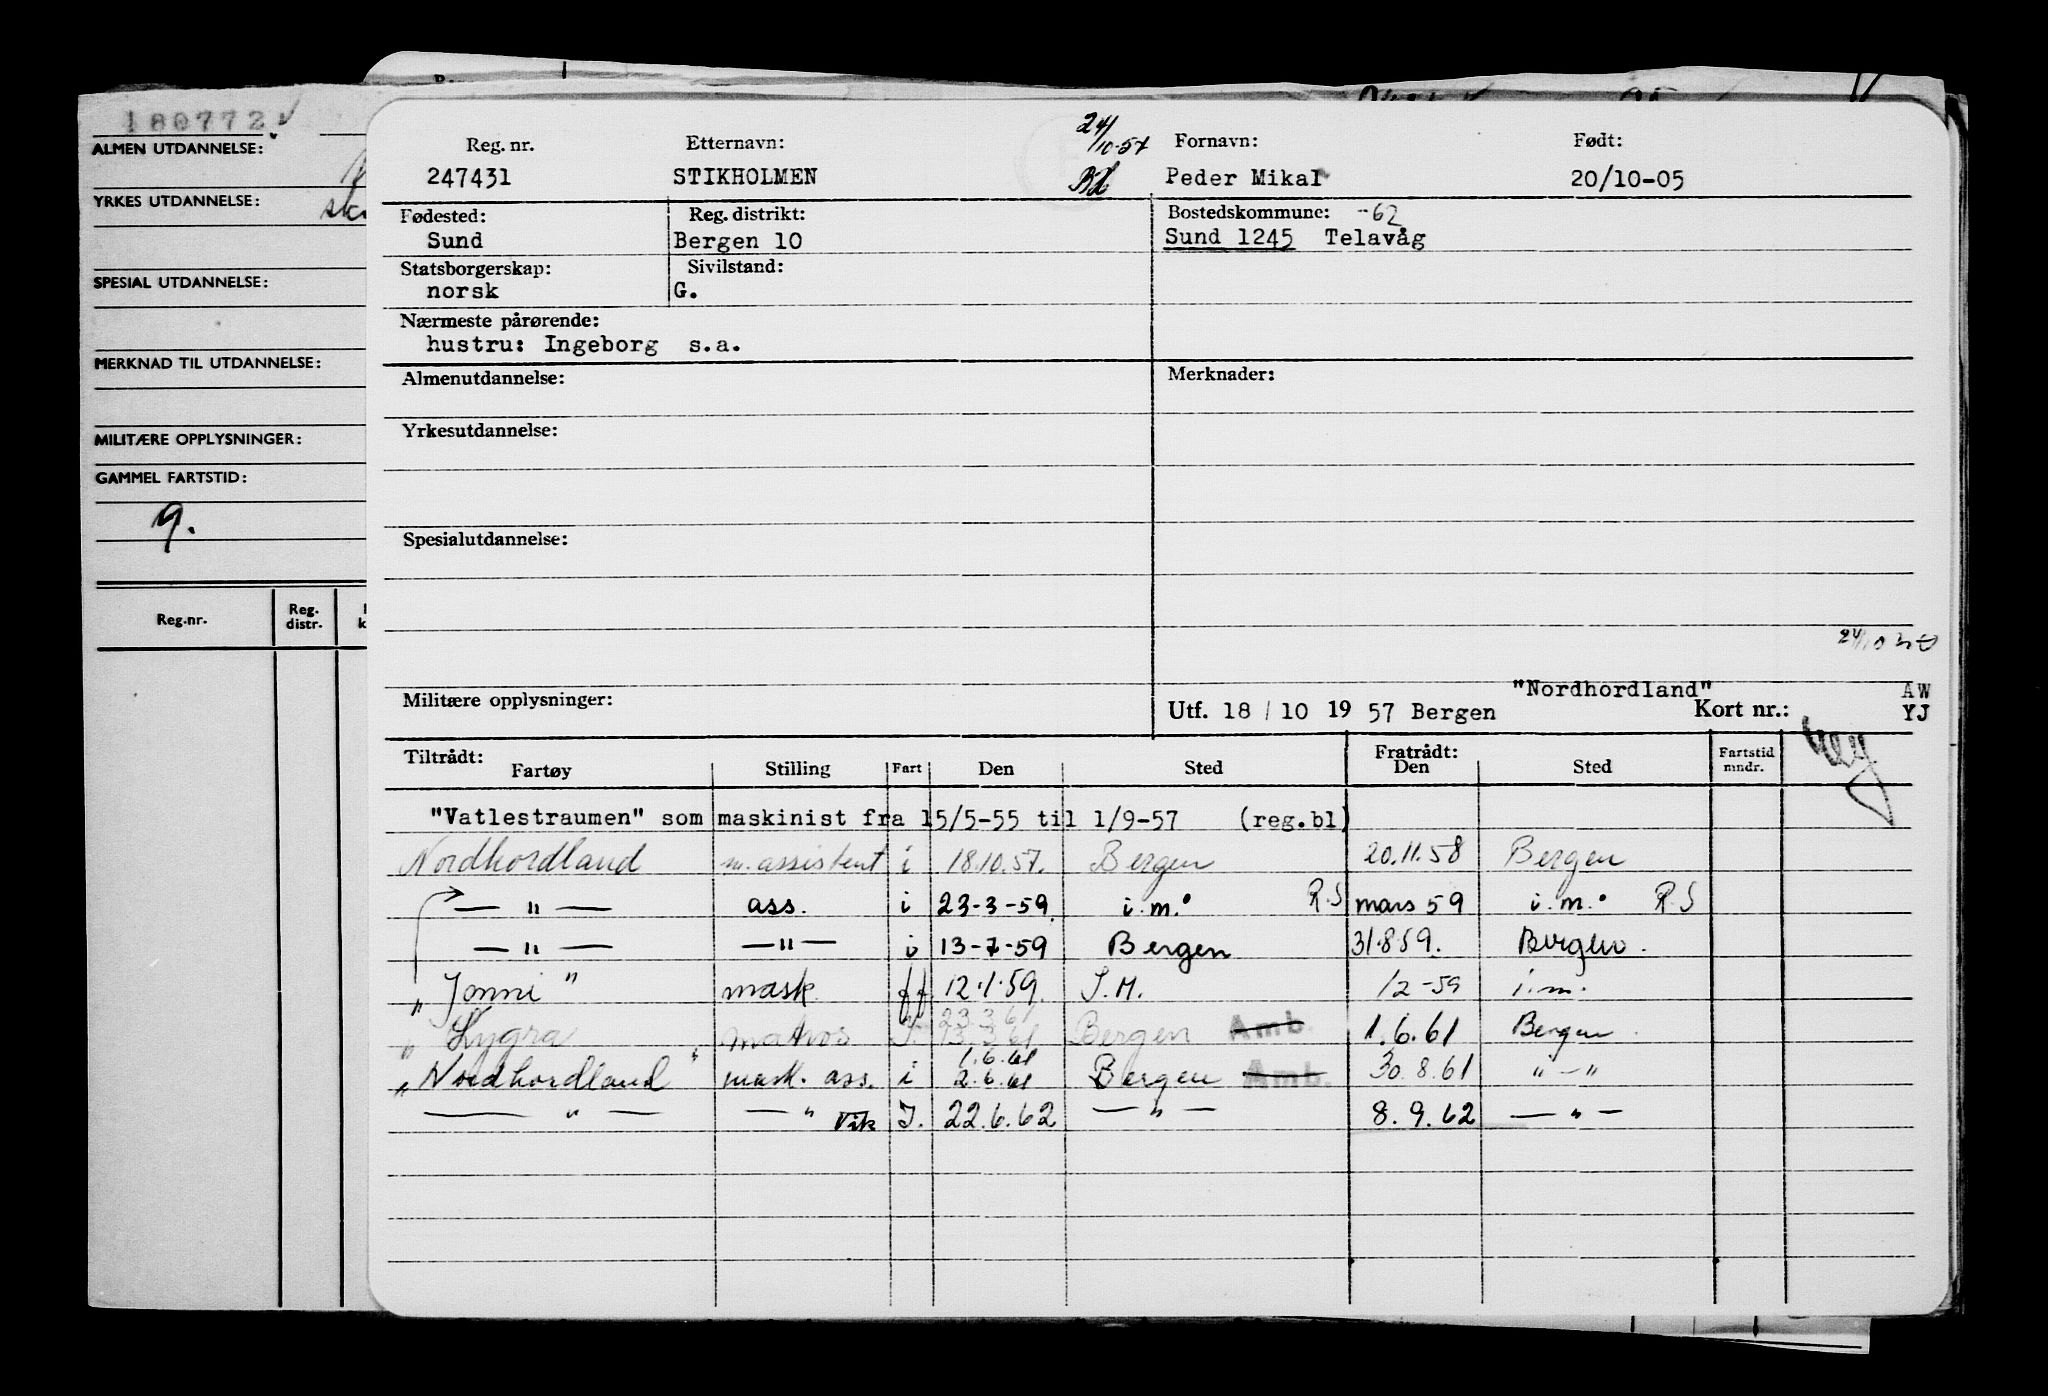 180772
ALMEN UTDANNELSE:
YRKES UTDANNELSE:
SPESIAL UTDANNELSE:
MERKNAD TIL UTDANNELSE:
MILITÆRE OPPLYSNINGER:
GAMMEL FARTSTID:
9.
Reg.nr. Reg. distr.
Reg. nr. Etternavn: 24/10-57 Fornavn: Født:
247431 STIKHOLMEN Peder Mikal 20/10-05
Fødested: Reg. distrikt: Bostedskommune: -62
Sund Bergen 10 Sund 1245 Telavåg
Statsborgerskap: Sivilstand:
norsk G.
Nærmeste pårørende:
hustru: Ingeborg s.a.
Almenutdannelse: Merknader:
Yrkesutdannelse:
Spesialutdannelse:
"Nordhordland" AW
Militære opplysninger: Utf. 18 / 10 19 57 Bergen Kort nr.: YJ
Tiltrådt: Fratrådt: Fartstid
Fartøy Stilling Fart Den Sted Den Sted mndr.
"Vatlestraumen" som maskinist fra 15/5-55 til 1/9-57 (reg.bl)
Nordhordland m.assistent i 18.10.57. Bergen 20.11.58 Bergen
— " — ass. i 23-3-59 i.m. R.S mars 59 i.m. R.S
— " — — " — i 13-7-59 Bergen 31.8.59. Bergen.
" Jonni " mask. ff. 12.1.59. I.M. 1/2-59 i.m.
23.3.61
" Lygra " matros I. 13.3.61 Bergen Amb. 1.6.61 Bergen.
1.6.61
" Nordhordland " mask. ass. i 2.6.61 Bergen Amb. 30.8.61 " — "
— " — — " Vik I. 22.6.62 — " — 8.9.62 — " —